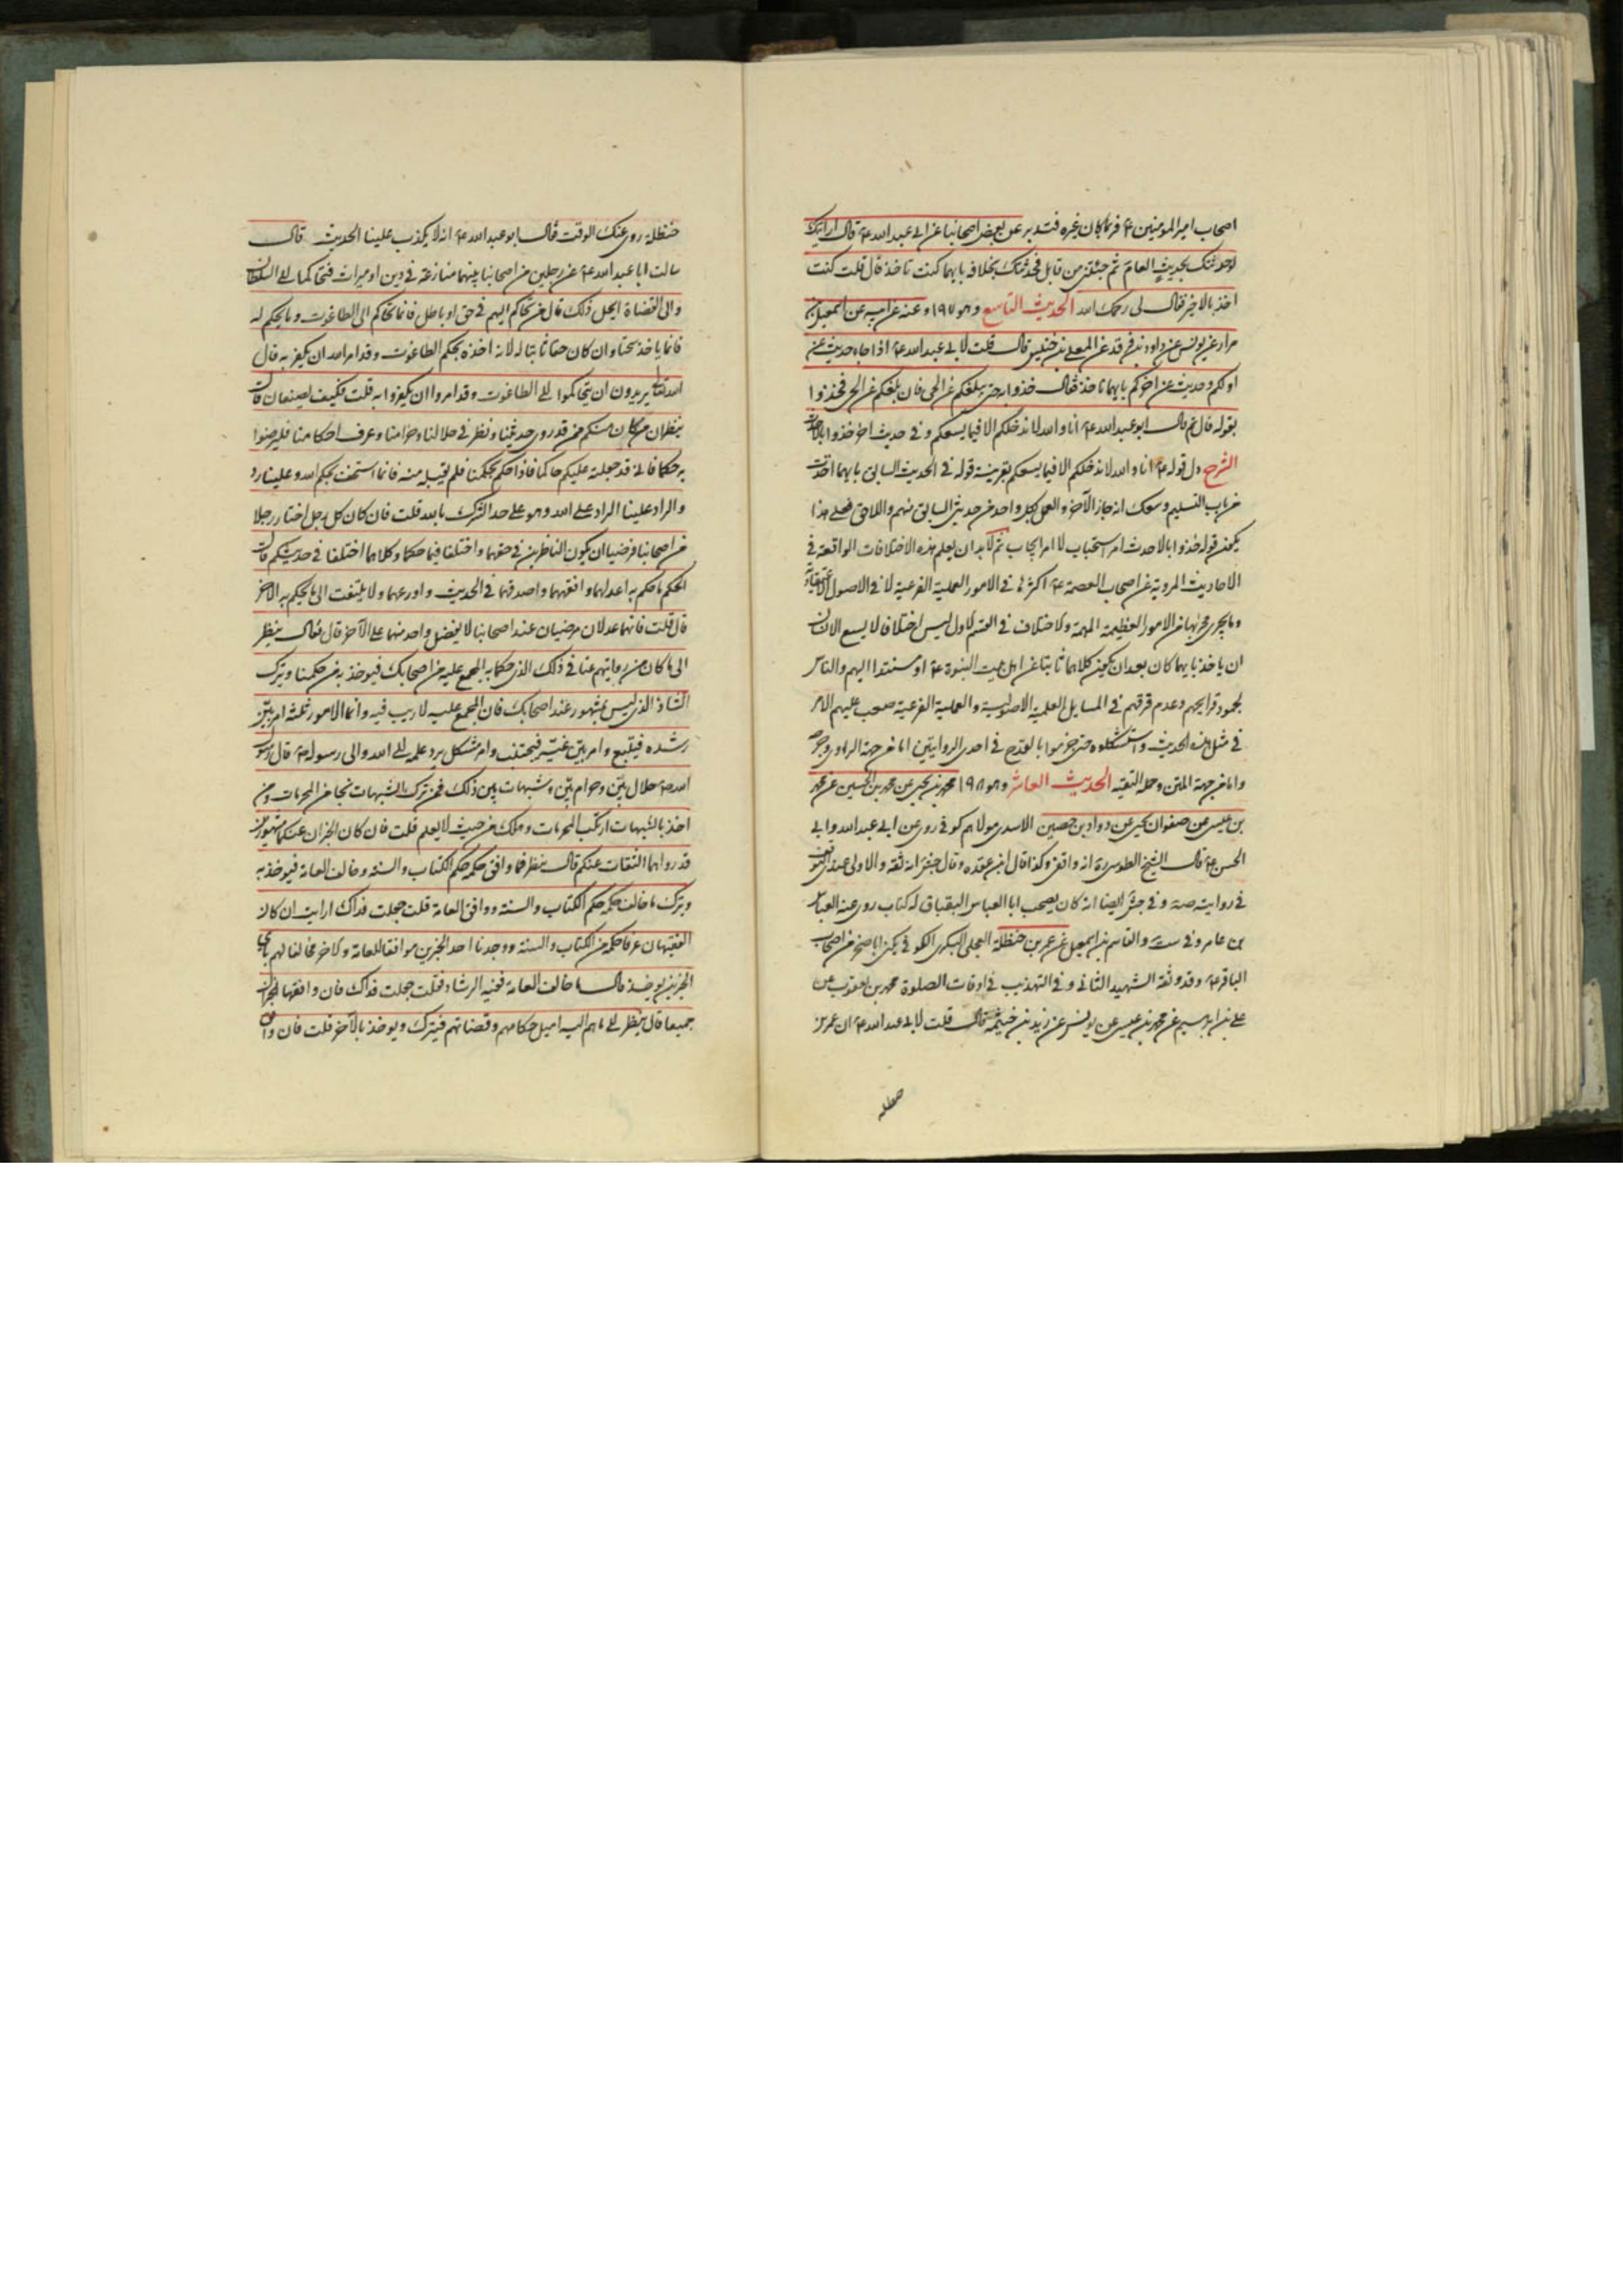 اصحاب امير المؤمنين ع فربما كان بغيره فتدبر عن بعض اصحابنا عن ابى عبد الله ع قال ارايتك
لوحدثتك بحديث العام ثم جئتنى من قابل فحدثتك بخلافه بايهما كنت تاخذ قال قلت كنت
اخذ بالاخير فقال لى رحمك الله الحديث التاسع وهو ١٩٧ وعنه عن ابيه عن اسمعيل بن
مرار عن يونس عن داود بن فرقد عن المعلى بن خنيس قال قلت لابى عبد الله ع اذا جاء حديث عن
اولكم وحديث عن اخركم بايهما ناخذ فقال خذوا به حتى يبلغكم عن الحى فان بلغكم عن الحى فخذوا
بقوله قال ثم قال ابو عبد الله ع انا والله لا ندخلكم الا فيما يسعكم وفى حديث اخر خذوا بالاحدث
الشرح دل قوله ع انا والله لا ندخلكم الا فيما يسعكم بقرينة قوله فى الحديث السابق بايهما اخذت
من باب التسليم وسعك انه جاز الآخذ والعمل بكل واحد من حديثى السابق منهم واللاحق فعلى هذا
يكون قوله خذوا بالاحدث امر استحباب لا امر ايجاب ثم لابد ان يعلم هذه الاختلافات الواقعة فى
الاحاديث المروية عن اصحاب العصمة ع اكثرها فى الامور العملية الفرعية لا فى الاصول الاعتقادية
وما يجرى مجراها من الامور العظيمة المهمة والاختلاف فى القسم الاول ليس اختلافا لا يسع الانسان
ان ياخذ بايهما كان بعد ان يكون كلاهما ثابتا عن اهل بيت النبوة ع او مستندا اليهم والناس
لجمود قرايحهم وعدم فرقهم فى المسايل العلمية الاصولية والعملية الفرعية صعب عليهم الامر
فى مثل هذه الحديث واستشكلوه حتى جزموا بالقدح فى احدى الروايتين اما من جهة الراوى وجرحه
واما من جهة المتن وحمله التقية الحديث العاشر وهو ١٩٨ محمد بن يحيى عن محمد بن الحسين عن محمد
بن عيسى عن صفوان يحيى عن دواد بن حصين الاسدى مولاهم كوفى روى عن ابى عبد الله وابى
الحسن ع قال الشيخ الطوسى ره انه واقفى وكذا قال ابن عقده وقال جش انه ثقه والاولى عندى التوقف
فى روايته صه وفى جش ايضا انه كان يصحب ابا العباس البقباق له كتاب روى عنه العباس
بن عامر وفى ست والقاسم بن اسمعيل عن عمر بن حنظلة العجلى البكرى الكوفى يكنى ابا صخر من اصحاب
الباقر ع وقد وثقه الشهيد الثانى وفى التهذيب فى اوقات الصلوة محمد بن يعقوب عن
على بن ابرهيم عن محمد بن عيسى عن يونس عن زيد بن خيثمة قال قلت لابى عبد الله ع ان عمر بن
حنظله
حنظلة روى عنك الوقت فقال ابو عبد الله ع انه لا يكذب علينا الحديث قال
سالت ابا عبد الله ع عن رجلين من اصحابنا بينهما منازعة فى دين او ميراث فتحاكما الى السلطان
والى القضاة ايحل ذلك قال من تحاكم اليهم فى حق او باطل فانما تحاكم الى الطاغوت وما يحكم له
فانما ياخذ سحتا وان كان حقا ثابتا له لانه اخذه بحكم الطاغوت وقد امر الله ان يكفر به قال
الله تعالى يريدون ان يتحاكموا الى الطاغوت وقد امروا ان يكفروا به قلت فكيف يصنعان قال
ينظران من كان منكم ممن قد روى حديثنا ونظر فى حلالنا وحرامنا وعرف احكامنا فليرضوا
به حكما فانى قد جعلته عليكم حاكما فاذا حكم بحكمنا فلم يقبله منه فانما استخف بحكم الله وعلينا رد
والراد علينا الراد على الله وهو على حد الشرك بالله قلت فان كان كل رجل اختار رجلا
من اصحابنا فرضيا ان يكون الناظرين فى حقهما واختلفا فيما حكما وكلاهما اختلفا فى حديثكم قال
الحكم ما حكم به اعدلهما وافقههما واصدقهما فى الحديث واورعهما ولا يلتفت الى ما يحكم به الاخر
قال قلت فانهما عدلان مرضيان عند اصحابنا لا يفضل واحد منهما على الآخر قال فقال ينظر
الى ما كان من روايتهم عنا فى ذلك الذى حكما به المجمع عليه من اصحابك فيوخذ به من حكمنا ويترك
الشاذ الذى ليس بمشهور عند اصحابك فان المجمع عليه لا ريب فيه وانما الامور ثلثة امر بين
رشده فيتبع وامر بين غيه فيجتنب وامر مشكل يرد علمه الى الله والى رسوله ص قال رسول
الله ص حلال بين وحرام بين وشبهات بين ذلك فمن ترك الشبهات نجا من المحرمات ومن
اخذ بالشبهات ارتكب المحرمات وهلك من حيث لا يعلم قلت فان كان الخبران عنكما مشهورين
قد رواهما الثقات عنكم قال ينظر فما وافق حكمه حكم الكتاب والسنه وخالف العامه فيوخذ به
ويترك ما خالف حكمه حكم الكتاب والسنة ووافق العامة قلت جعلت فداك ارايت ان كان
الفقيهان عرفا حكمه من الكتاب والسنة ووجدنا احد الخبرين موافقا للعامة والاخر مخالفا لهم باى
الخبرين يوخذ قال ما خالف العامة ففيه الرشاد فقلت جعلت فداك فان وافقهما الخبران
جميعا قال ينظر الى ما هم اليه اميل حكامهم وقضاتهم فيترك ويوخذ بالآخر قلت فان وافق